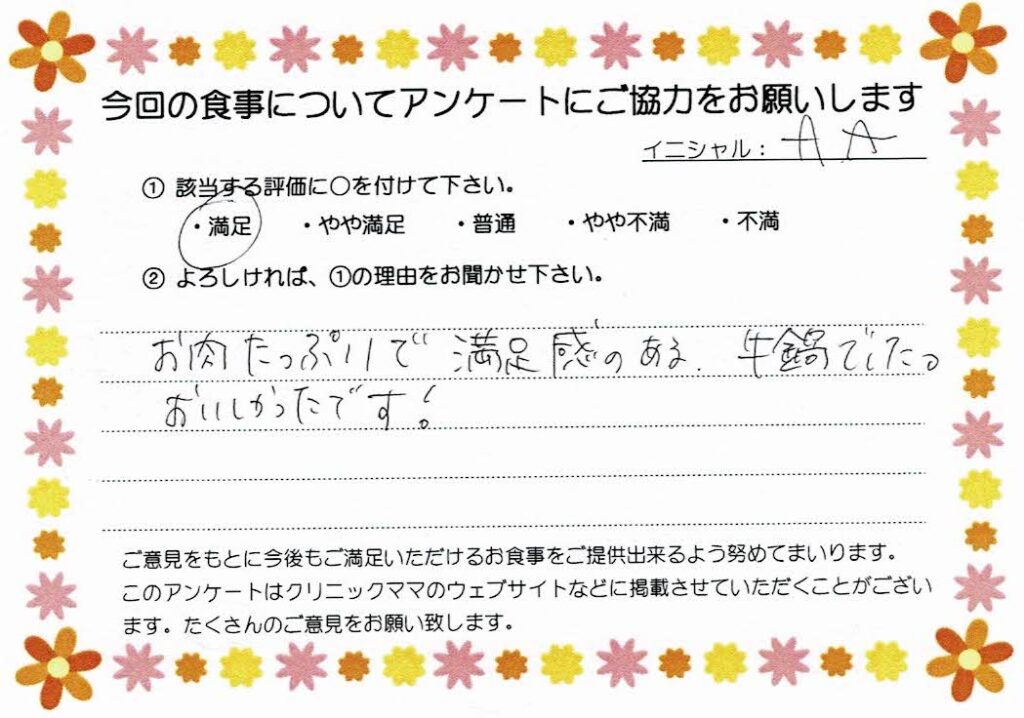 今回の食事についてアンケートにご協力をお願いします
イニシャル： A A
① 該当する評価に〇を付けて下さい。
・満足 ・やや満足 ・普通 ・やや不満 ・不満
② よろしければ、①の理由をお聞かせ下さい。
お肉たっぷりで満足感のある、牛鍋でした。
おいしかったです！
ご意見をもとに今後もご満足いただけるお食事をご提供出来るよう努めてまいります。
このアンケートはクリニックママのウェブサイトなどに掲載させていただくことがござい
ます。たくさんのご意見をお願い致します。